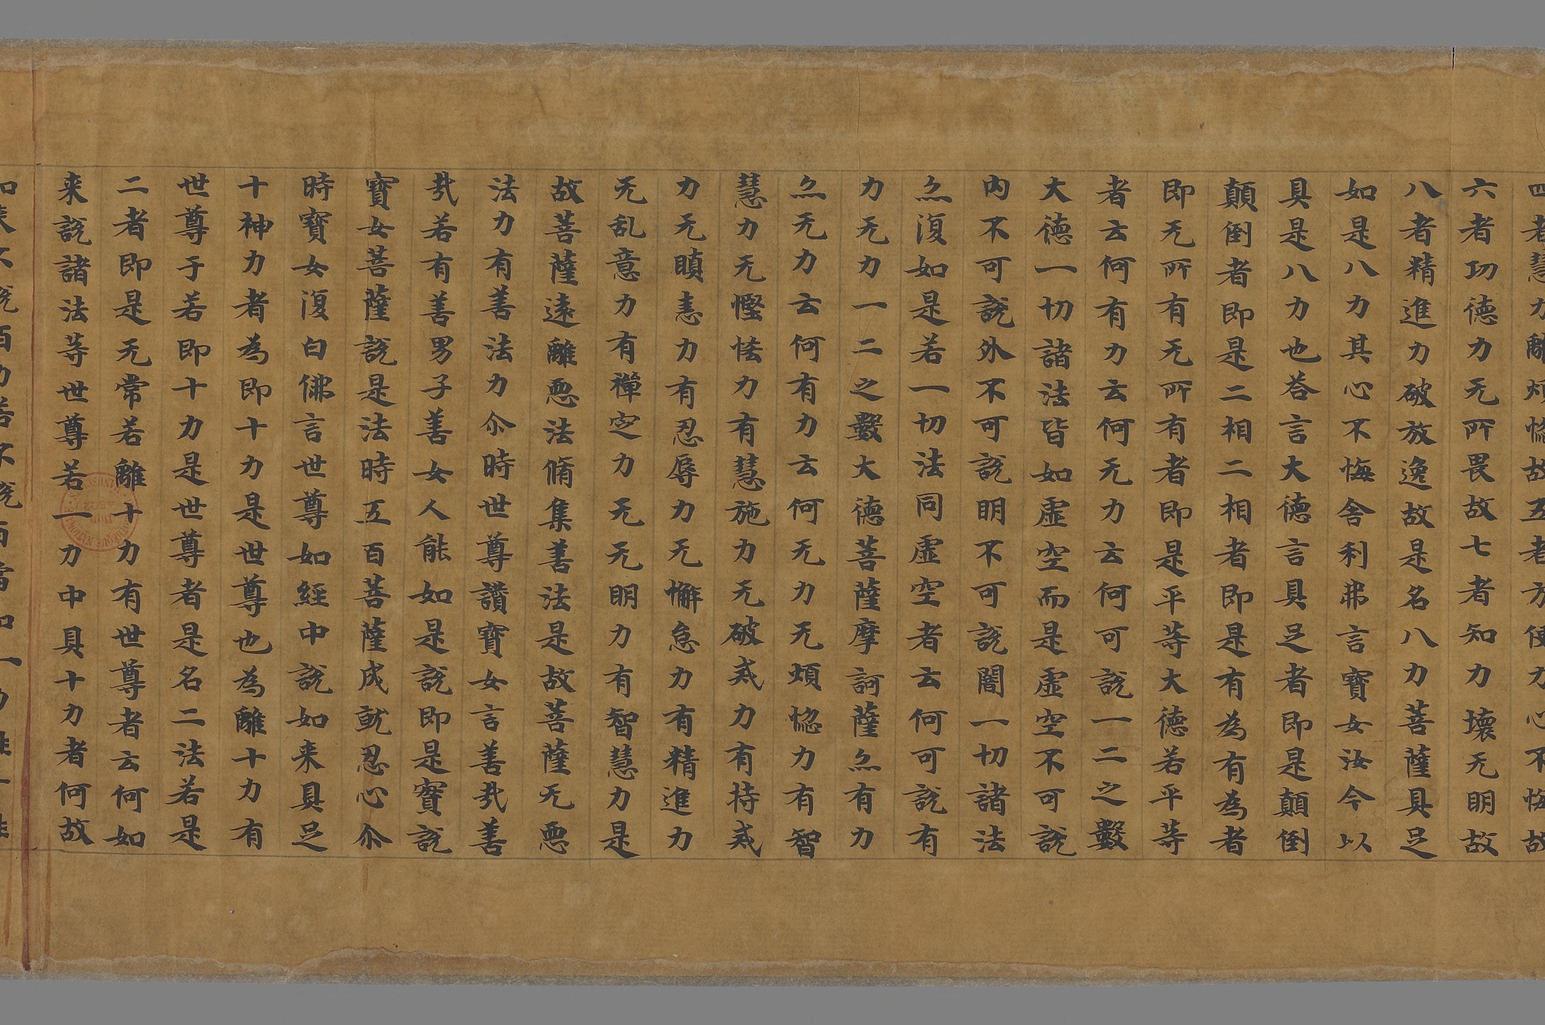 四者慧力離煩惱故五者方便力心不悔故
六者功德力无所畏故七者知力壞无明故
八者精進力破放逸故是名八力菩薩具足
如是八力其心不悔舍利弗言寶女汝今以
具是八力也荅言大德言具足者即是顛倒
顛倒者即是二相二相者即是有為有為者
即无所有无所有者即是平等大德若平等
者云何有力云何无力云何可說一二之數
大德一切諸法皆如虛空而是虛空不可說
內不可說外不可說明不可說闇一切諸法
亦復如是若一切法同虛空者云何可說有
力无力一二之數大德菩薩摩訶薩亦有力
亦无力云何有力云何无力无煩惱力有智
慧力无慳悋力有慧施力无破戒力有持戒
力无瞋恚力有忍辱力无懈怠力有精進力
无乱意力有禪定力无无明力有智慧力是
故菩薩遠離惡法脩集善法是故菩薩无惡
法力有善法力尒時世尊讚寶女言善㢤善
㢤若有善男子善女人能如是說即是寶說
寶女菩薩說是法時五百菩薩成就忍心尒
時寶女復白佛言世尊如經中說如来具足
十神力者為即十力是世尊也為離十力有
世尊于若即十力是世尊者是名二法若是
二者即是无常若離十力有世尊者云何如
来說諸法等世尊若一力中具十力者何故